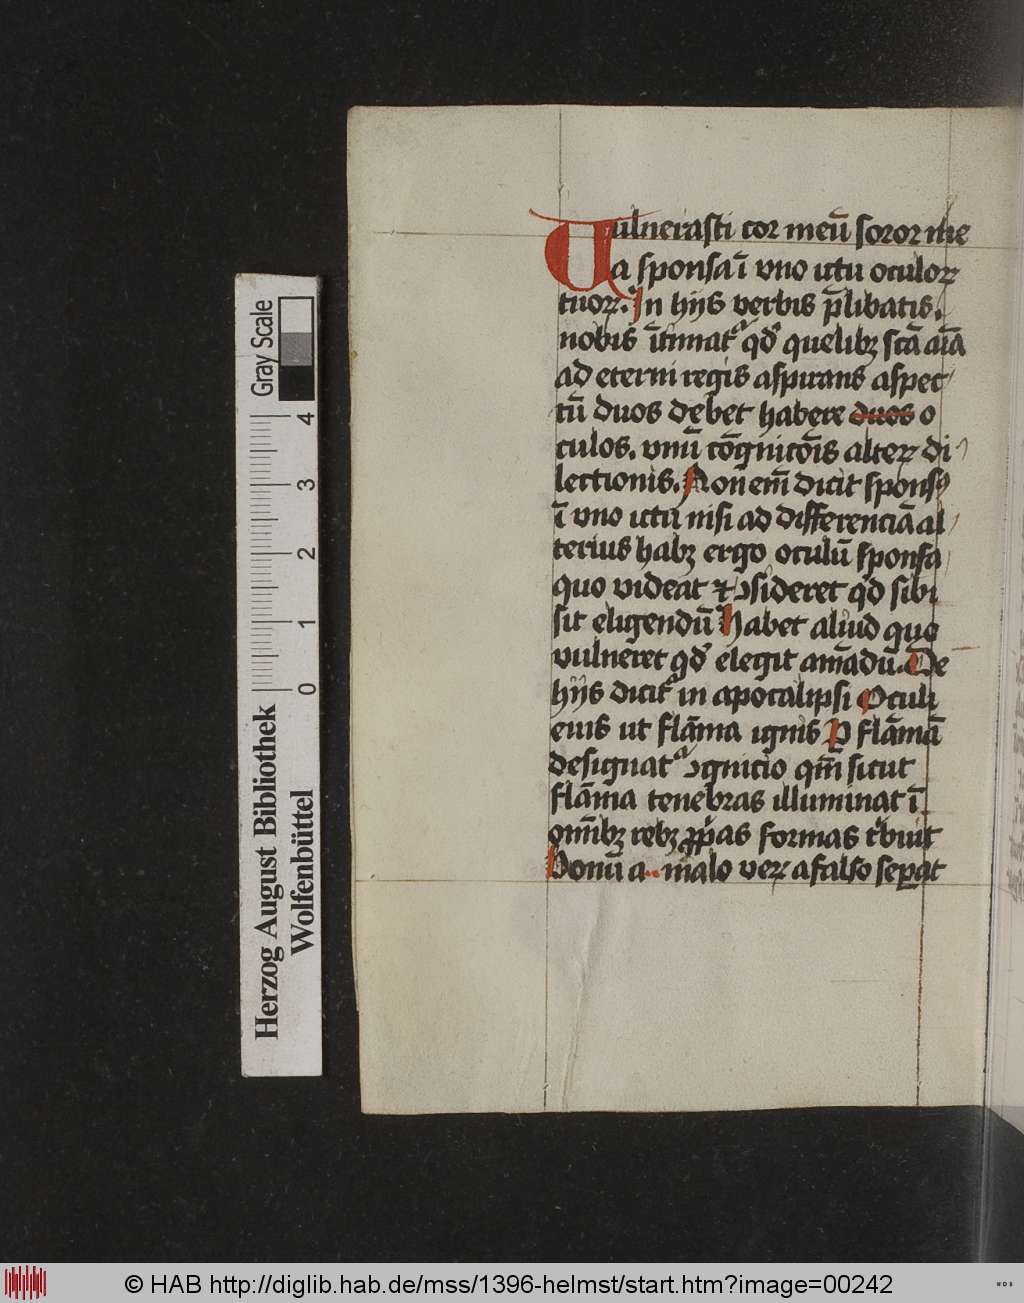 Vulnerasti cor meū soror me
a sponsa ī vno ictu oculoꝝ
tuoꝝ. In hijs verbis p̄libatis.
nobis ītimatʳ qd̛ quelibꝫ scā aīa
ad eterni regis aspirans aspec
tū duos debet habere duos o
culos. vnū cōgnicōis alteꝝ di
lectionis. Non em̄ dicit sponsꝰ
ī vno ictu nisi ad differenciā al
terius habꝫ ergo oculū sponsa
quo videat ⁊ ꝯsideret qd̛ sibi
sit eligendū Habet aliud quo
vulneret qd̛ elegit amādū. De
hijs dicitʳ in apocalipsi Oculi
eius ut flāma ignis Ꝑ flāmā
designatʳ ꝯgnicio qm̄ sicut
flāma tenebras illuminat ī
om̄ibꝫ rebꝫ ꝓp̛as formas t̛buit
Bonū a malo veꝝ a falso seꝑat
Gray Scale
4
3
2
1
0
Herzog August Bibliothek
Wolfenbüttel
© HAB http://diglib.hab.de/mss/1396-helmst/start.htm?image=00242
WDB